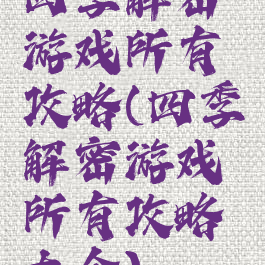 四季解密
游戏所有
攻略(四季
解密游戏
所有攻略
大全)